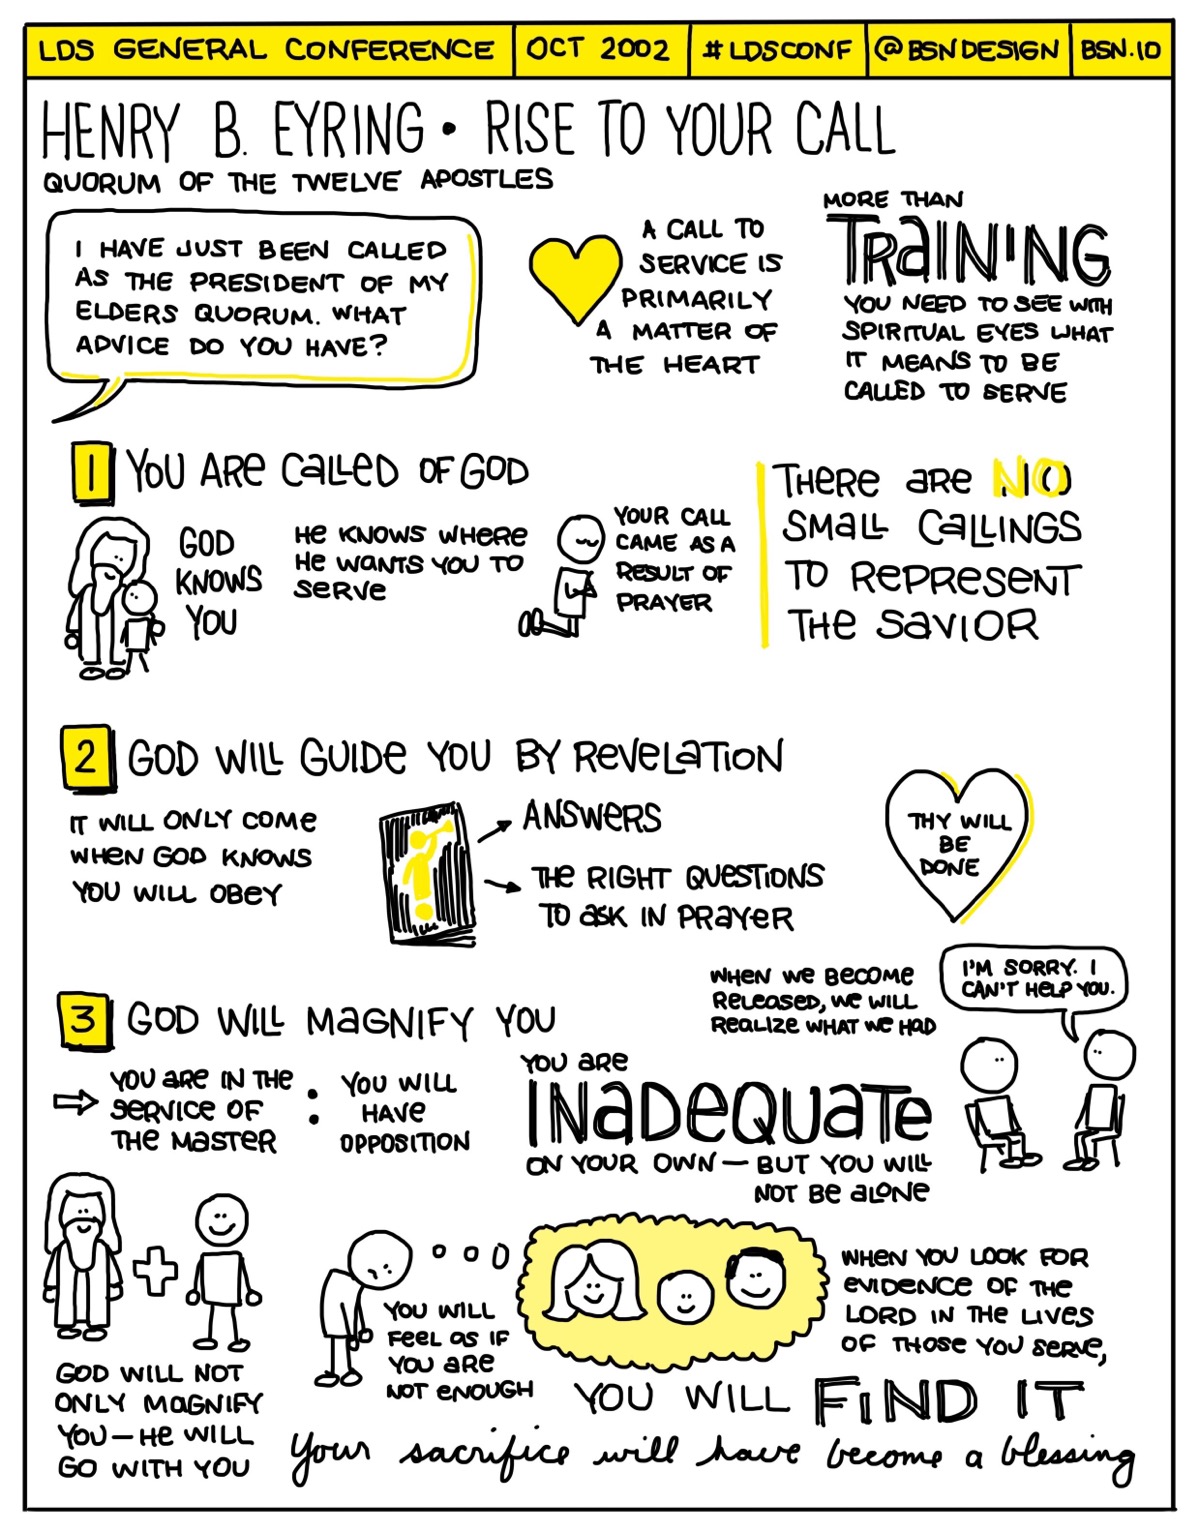 LDS GENERAL CONFERENCE OCT 2002 #LDSCONF @BSNDESIGN BSN.IO
HENRY B. EYRING • RISE TO YOUR CALL
QUORUM OF THE TWELVE APOSTLES
I HAVE JUST BEEN CALLED
AS THE PRESIDENT OF MY
ELDERS QUORUM. WHAT
ADVICE DO YOU HAVE?
A CALL TO
SERVICE IS
PRIMARILY
A MATTER OF
THE HEART
MORE THAN
TRAINING
YOU NEED TO SEE WITH
SPIRITUAL EYES WHAT
IT MEANS TO BE
CALLED TO SERVE
1 YOU ARE CALLED OF GOD
GOD
KNOWS
YOU
HE KNOWS WHERE
HE WANTS YOU TO
SERVE
YOUR CALL
CAME AS A
RESULT OF
PRAYER
THERE ARE NO
SMALL CALLINGS
TO REPRESENT
THE SAVIOR
2 GOD WILL GUIDE YOU BY REVELATION
IT WILL ONLY COME
WHEN GOD KNOWS
YOU WILL OBEY
ANSWERS
THE RIGHT QUESTIONS
TO ASK IN PRAYER
THY WILL
BE
DONE
3 GOD WILL MAGNIFY YOU
YOU ARE IN THE
SERVICE OF
THE MASTER
:
YOU WILL
HAVE
OPPOSITION
WHEN WE BECOME
RELEASED, WE WILL
REALIZE WHAT WE HAD
I'M SORRY. I
CAN'T HELP YOU.
YOU ARE
INADEQUATE
ON YOUR OWN — BUT YOU WILL
NOT BE ALONE
GOD WILL NOT
ONLY MAGNIFY
YOU — HE WILL
GO WITH YOU
YOU WILL
FEEL AS IF
YOU ARE
NOT ENOUGH
WHEN YOU LOOK FOR
EVIDENCE OF THE
LORD IN THE LIVES
OF THOSE YOU SERVE,
YOU WILL FIND IT
Your sacrifice will have become a blessing